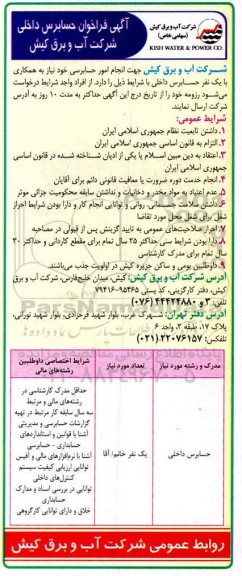 آگهی فراخوان حسابرس داخلی
شرکت آب و برق کیش
شرکت آب و برق کیش
(سهامی خاص)
KISH WATER & POWER CO.
شرکت آب و برق کیش جهت انجام امور حسابرسی خود نیاز به همکاری
با یک نفر حسابرس داخلی با شرایط ذیل را دارد. از افراد واجد شرایط درخواست
می‌شود رزومه خود را از تاریخ درج این آگهی حداکثر به مدت ۱۰ روز به آدرس
شرکت ارسال نمایند.
شرایط عمومی:
۱. داشتن تابعیت نظام جمهوری اسلامی ایران
۲. التزام به قانون اساسی جمهوری اسلامی ایران
۳. اعتقاد به دین مبین اسلام یا یکی از ادیان شناخته شده در قانون اساسی
جمهوری اسلامی ایران
۴. انجام خدمت دوره ضرورت یا معافیت قانونی دائم برای آقایان
۵. عدم اعتیاد به مواد مخدر و دخانیات و نداشتن سابقه محکومیت جزائی موثر
۶. داشتن سلامت جسمانی، روانی و توانایی انجام کار و دارا بودن شرایط احراز
شغل برای شغل محل مورد تقاضا
۷. احراز صلاحیت‌های عمومی به تایید گزینش پس از قبولی در مصاحبه
۸. دارا بودن شرایط سنی حداکثر ۲۵ سال تمام برای مقطع کاردانی و حداکثر ۳۰
سال تمام برای مدرک کارشناسی
۹. داوطلبین بومی و ساکن جزیره کیش در اولویت جذب می‌باشند
آدرس شرکت آب و برق کیش: کیش، میدان خلیج‌فارس، شرکت آب و برق
کیش، دفتر کارگزینی، کد پستی ۹۵۳۶۵-۷۹۴۱۶
تلفن: ۳ و ۴۴۴۲۴۸۸۰ (۰۷۶)
آدرس دفتر تهران: شهرک غرب، بلوار شهید فرحزادی، بلوار شهید نورانی،
پلاک ۱۷، طبقه ۳، واحد ۶
تلفکس: ۲۲۰۷۶۱۵۷ (۰۲۱)
مدرک و رشته مورد نیاز
تعداد مورد نیاز
شرایط اختصاصی داوطلبین
رشته‌های مالی
حسابرس داخلی
یک نفر خانم/ آقا
حداقل مدرک کارشناسی در
رشته‌های مالی و مرتبط
سه سال سابقه کار مرتبط در تهیه
گزارشات حسابرسی و مدیریتی
آشنا با قوانین و استانداردهای
حسابداری - حسابرسی
آشنا با نرم‌افزارهای مالی و آفیس
توانایی ارزیابی کیفیت سیستم
کنترل‌های داخلی
توانایی در بررسی اسناد و مدارک
حسابداری
خلاق و دارای توانایی کارگروهی
روابط عمومی شرکت آب و برق کیش